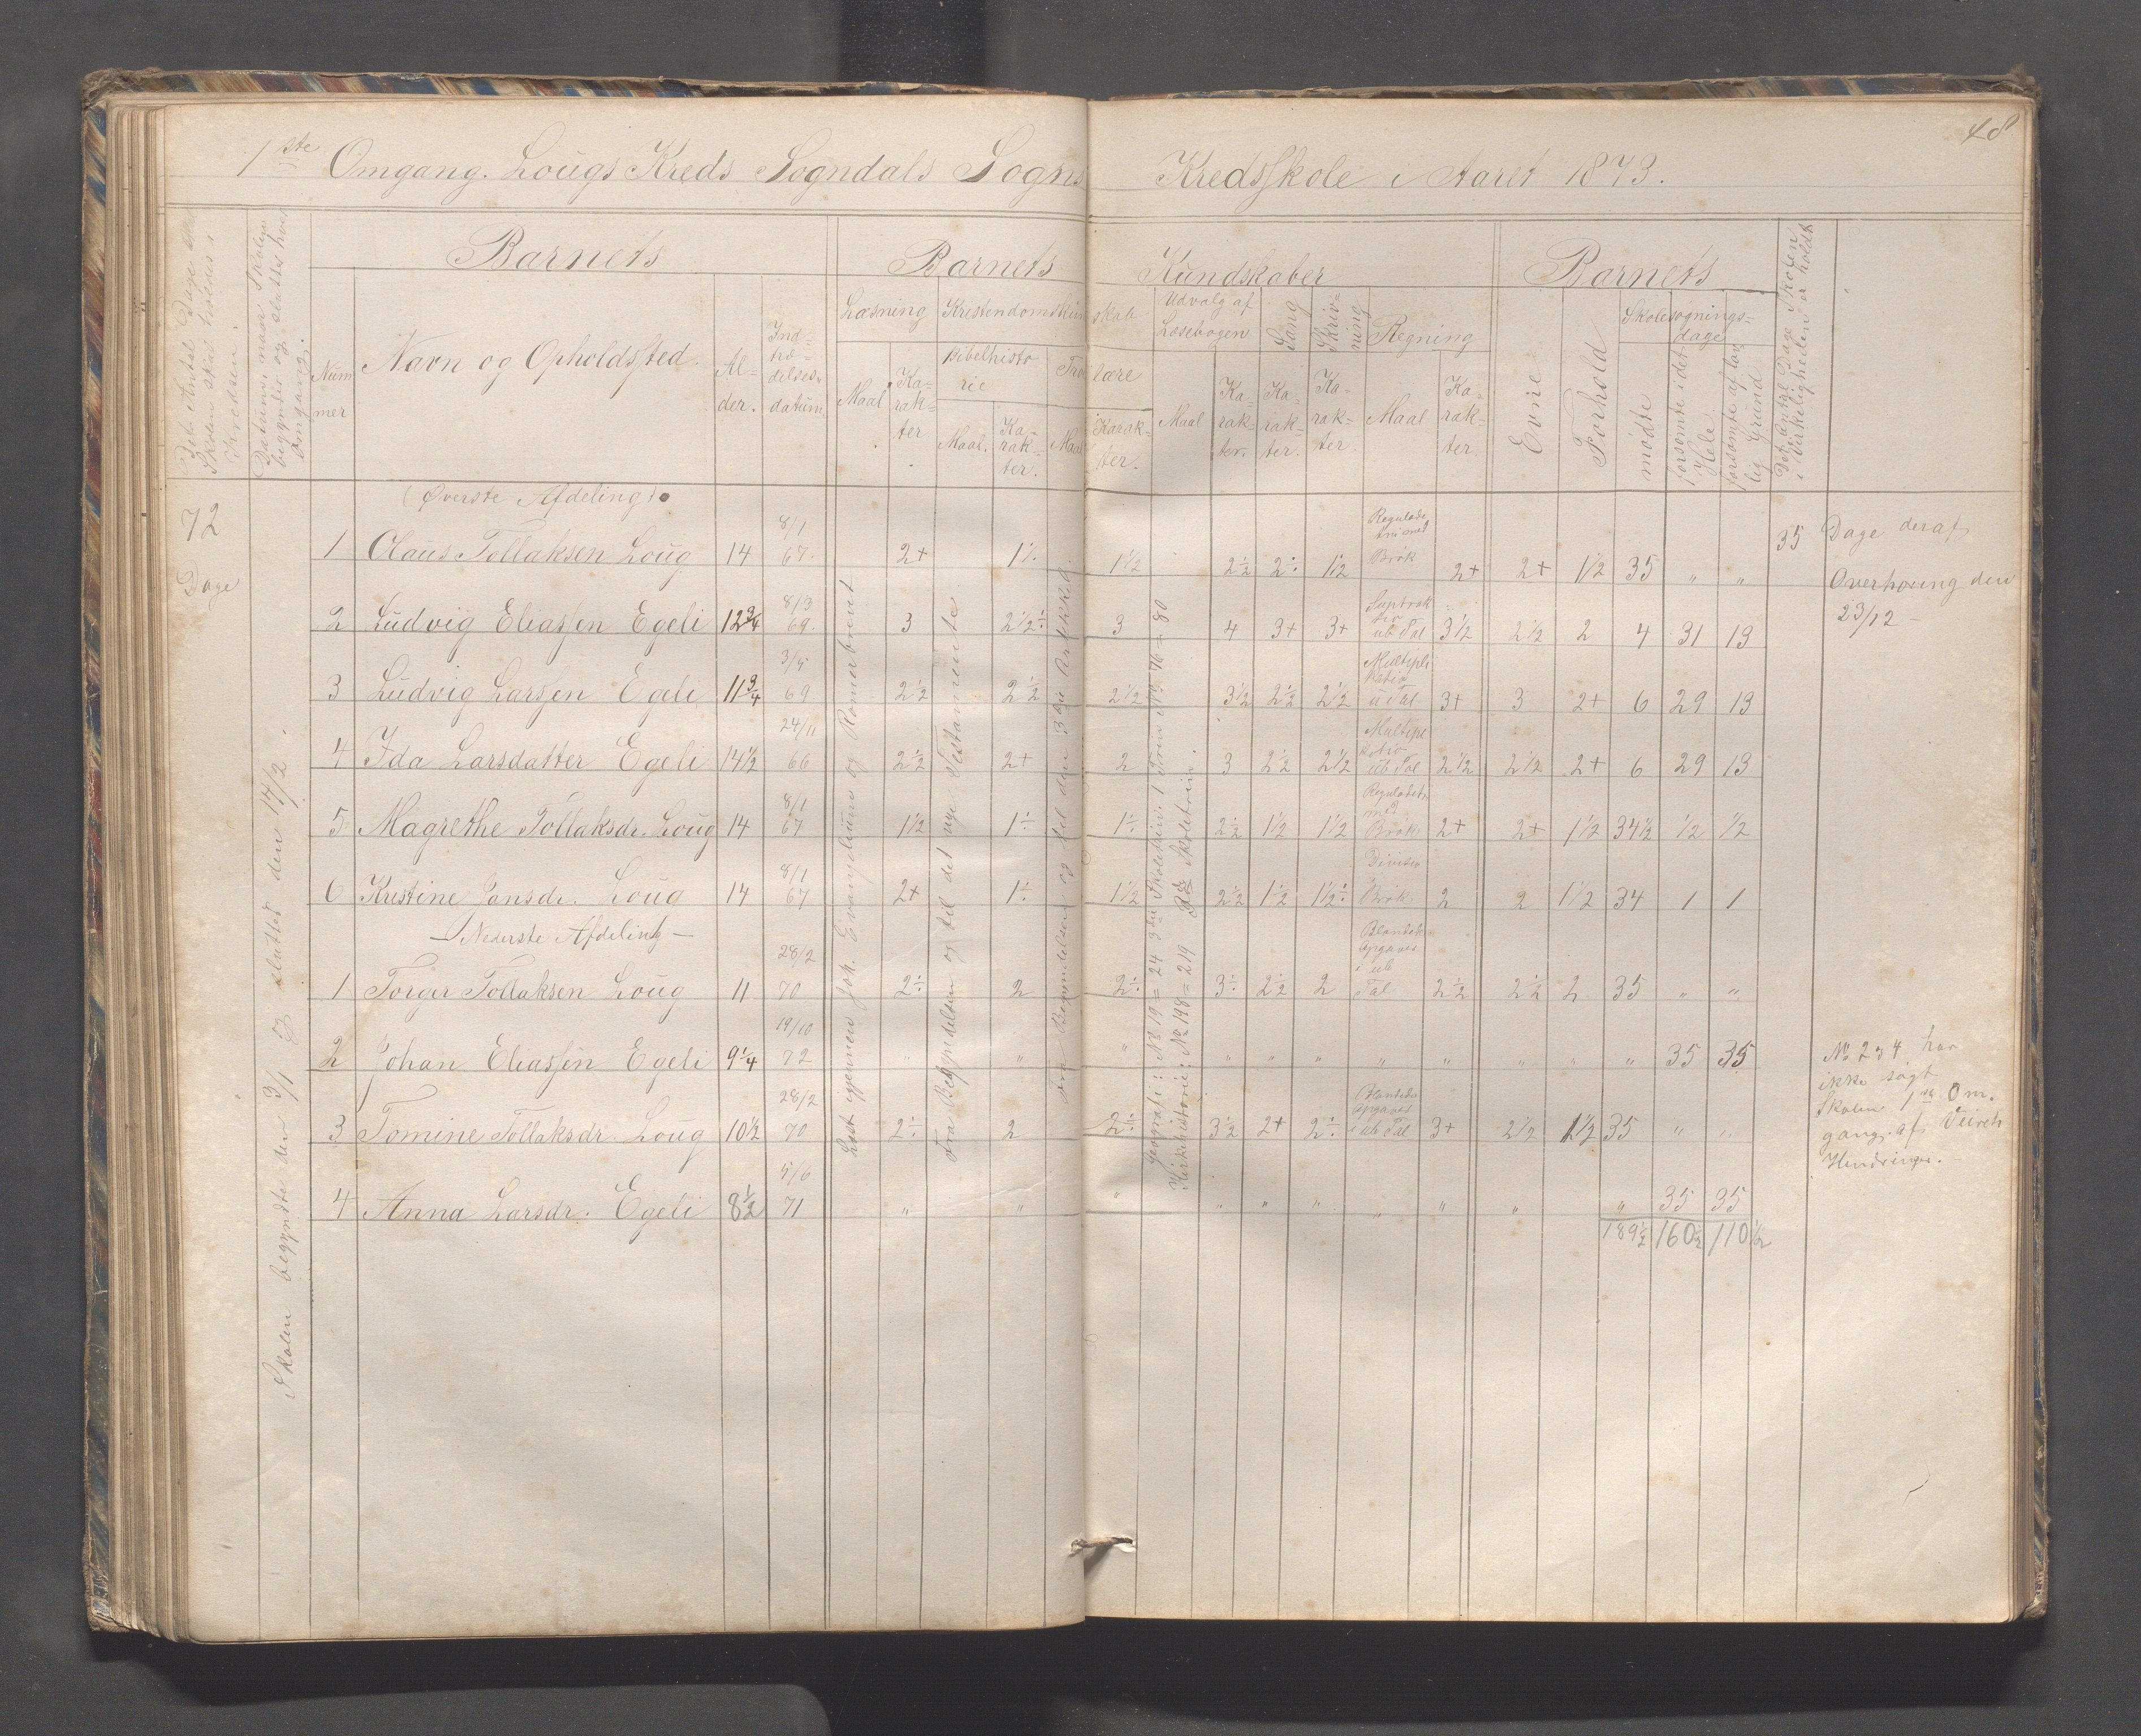 48
1ste Omgang. Lougs Kreds Sogndals Sogns Kredsskole i Aaret 1873.
Det Antal Dage
Skolen skal holdes i
Kredsen.
Datum, naar Skolen
begyndte og sluttes hver
Omgang.
Barnets
Num
mer
Navn og Opholdssted.
Al=
der.
Ind=
træ=
delses=
datum
Barnets Kundskaber
Læsning
Maal
Ka=
rak=
ter
Kristendomskundskab
Bibelhisto
rie
Maal.
Ka=
rak=
ter.
Troeslære
Maal
Karak=
ter.
Udvalg af
Læsebogen
Maal
Ka=
rak=
ter.
Sang
Ka=
rak=
ter.
Skriv=
ning
Ka=
rak=
ter
Regning
Maal
Ka=
rak=
ter.
Barnets
Evne
Forhold
Skolesøgnings=
dage
mødte
forsømte i det
Hele.
forsømte af lov
lig Grund
Det Antal Dage Skolen
i Virkeligheden er holdt
72
Dage
Skolen begyndte den 3/1 og sluttet den 17/2.
(Øverste Afdeling).
1 Olaus Tollaksen Loug 14 8/1 67. 2+ 1÷ 1½ 2½ 2÷ 1½ Regulade tri med Brøk 2+ 2+ 1½ 35 " " 35 Dage deraf
Overhøring den
23/12 -
2 Ludvig Eliassen Egeli 12¾ 8/3 69. 3 2½÷ 3 4 3+ 3+ ub Tal 3½ 2½ 2 4 31 13
3 Ludvig Larssen Egeli 11¾ 3/5 69 2½ 2½ 2½ 3½ 2½ 2½ Multipli kation u Tal 3+ 3 2+ 6 29 13
4 Ida Larsdatter Egeli 14½ 24/11 66 2½ 2+ 2 3 2½ 2½ ub Tal 2½ 2½ 2+ 6 29 13
5 Magrethe Tollaksdr. Loug 14 8/1 67 1½ 1÷ 1÷ 2½ 1½ 1½ Reguladetri med Brøk 2+ 2+ 1½ 34½ ½ ½
6 Kristine Jansdr. Loug 14 8/1 67 2+ 1÷ 1½ 2½ 1½ 1½÷ Division Brøk 2 2 1½ 34 1 1
- Nederste Afdeling -
1 Torger Tollaksen Loug 11 28/2 70 2÷ 2 2÷ 3÷ 2½ 2 Blandede Opgaver i ub Tal 2½ 2½ 2 35 " "
2 Johan Eliassen Egeli 9¼ 19/10 72 " " " " " " " " " " " 35 35
3 Tomine Tollaksdr. Loug 10½ 28/2 70 2÷ 2 2÷ 3½ 2+ 2÷ Blandede Opgaver i ub Tal 3+ 2½ 1½ 35 " "
4 Anna Larsdr. Egeli 8½ 5/6 71 " " " " " " " " " " 35 35
189½ 160½ 110½
Læst igjennem Joh. Evangelium og Romerbrevet
Fra Begyndelsen og til det nye Testamente
Fra Begyndelsen og til den 3die Artikkel.
Geografi: No 19 = 24 3die Skoletrin. 1 Trin No 76 = 80
Kirkehistorie: No 198 = 219 Skoletrin.
No 2 og 4 har
ikke søgt
Skolen 1ste Om.
gang. af Veirets
Hindringer. -